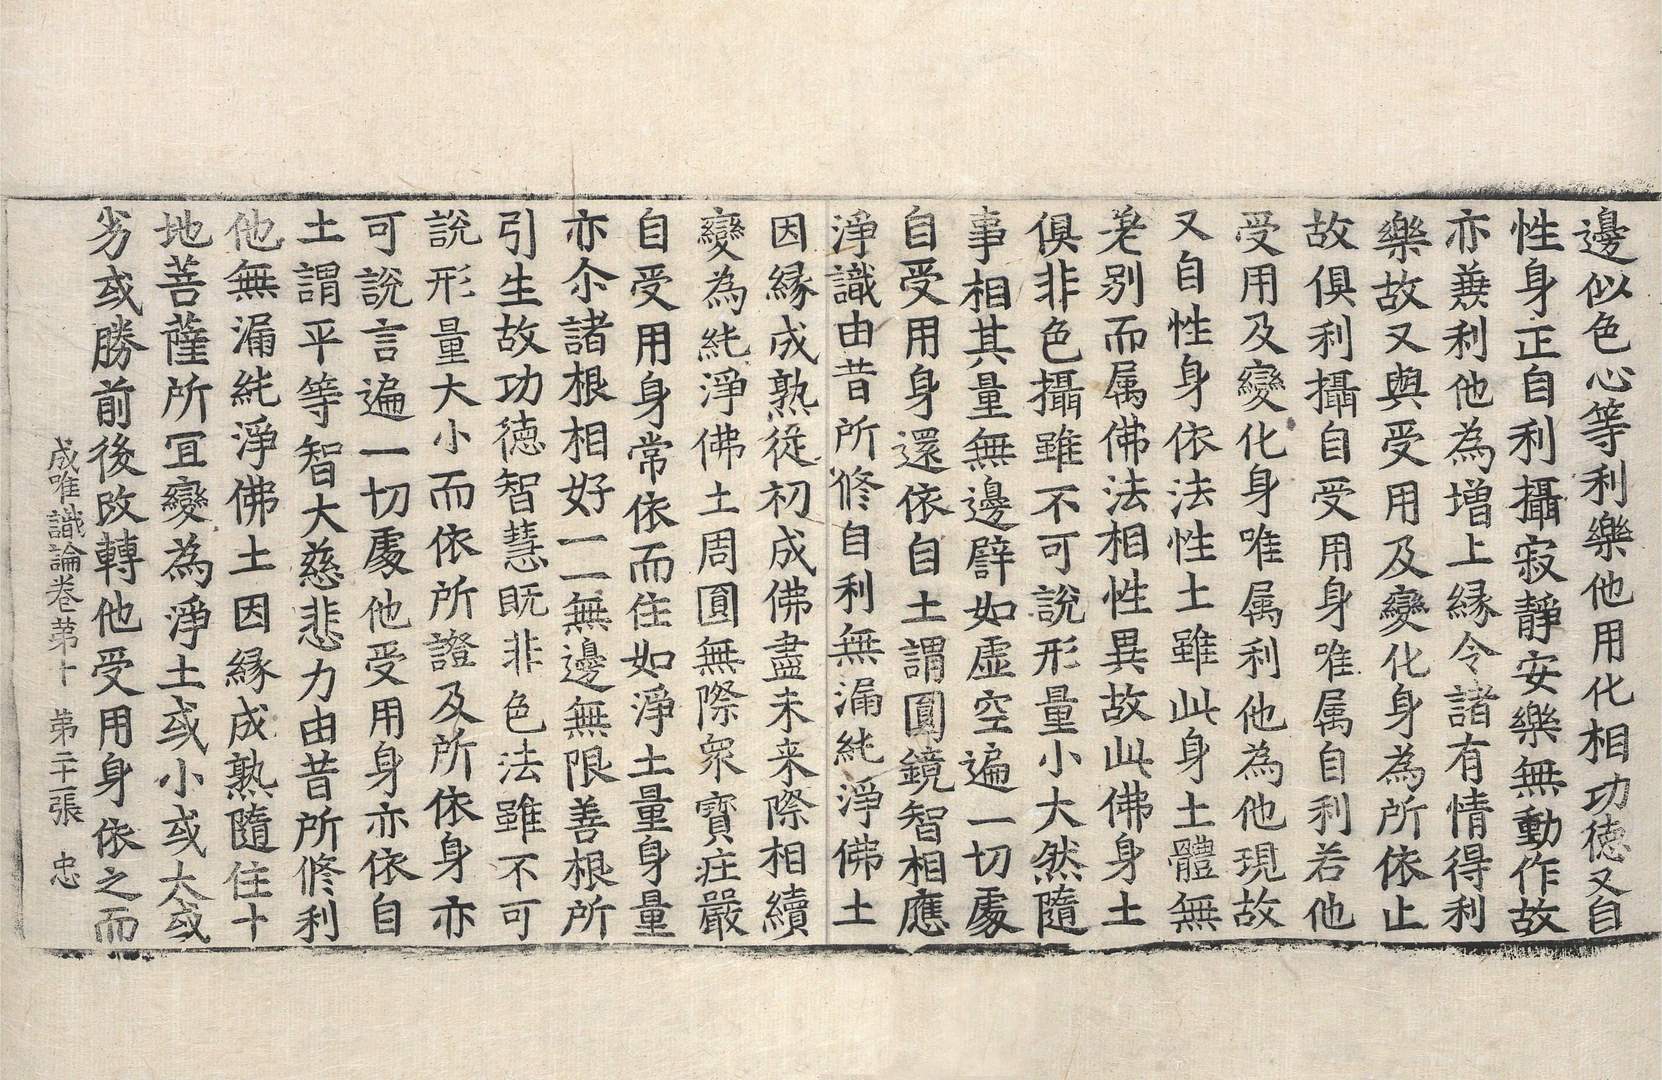 邊似色心等利樂他用化相功徳又自
性身正自利攝寂靜安樂無動作故
亦兼利他為增上縁令諸有情得利
樂故又與受用及變化身為所依止
故俱利攝自受用身唯属自利若他
受用及變化身唯属利他為他現故
又自性身依法性土雖此身土體無
差别而属佛法相性異故此佛身土
俱非色攝雖不可說形量小大然隨
事相其量無邊譬如虛空遍一切處
自受用身還依自土謂圓鏡智相應
淨識由昔所修自利無漏純淨佛土
因縁成熟從初成佛盡未来際相續
變為純淨佛土周圓無際衆寶莊嚴
自受用身常依而住如淨土量身量
亦尒諸根相好一一無邊無限善根所
引生故功徳智慧既非色法雖不可
說形量大小而依所證及所依身亦
可說言遍一切處他受用身亦依自
土謂平等智大慈悲力由昔所修利
他無漏純淨佛土因縁成熟隨住十
地菩薩所冝變為淨土或小或大或
劣或勝前後改轉他受用身依之而
成唯識論卷第十 第二十一張 忠